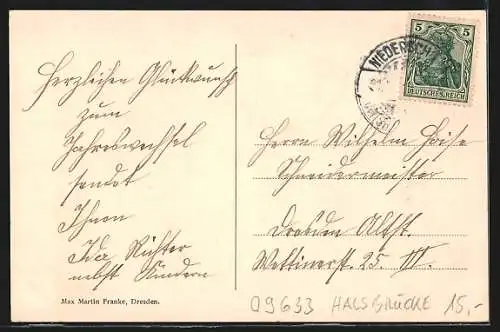 Herzlichen Glückwunsch
zum
Jahreswechsel
sendet
Ihnen
Ida Richter
nebst Kindern
Max Martin Franke, Dresden.
NIEDERSCH
5 5
DEUTSCHES REICH
Herrn Wilhelm
Schneidermeister
Dresden Altst.
Wettinerst. 25. III.
09633 HALSBRÜCKE 15,-